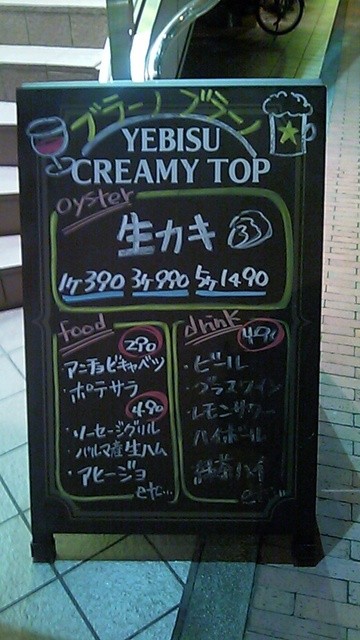 ブラーノブラーン
YEBISU
CREAMY TOP
oyster
生カキ
1ケ390 3ケ990 5ケ1490
food
290
アンチョビキャベツ
・ポテサラ
490
・ソーセージグリル
・パルマ産生ハム
・アヒージョ
etc...
drink
490
・ビール
・グラスワイン
・レモンサワー
ハイボール
紅茶ハイ
etc...